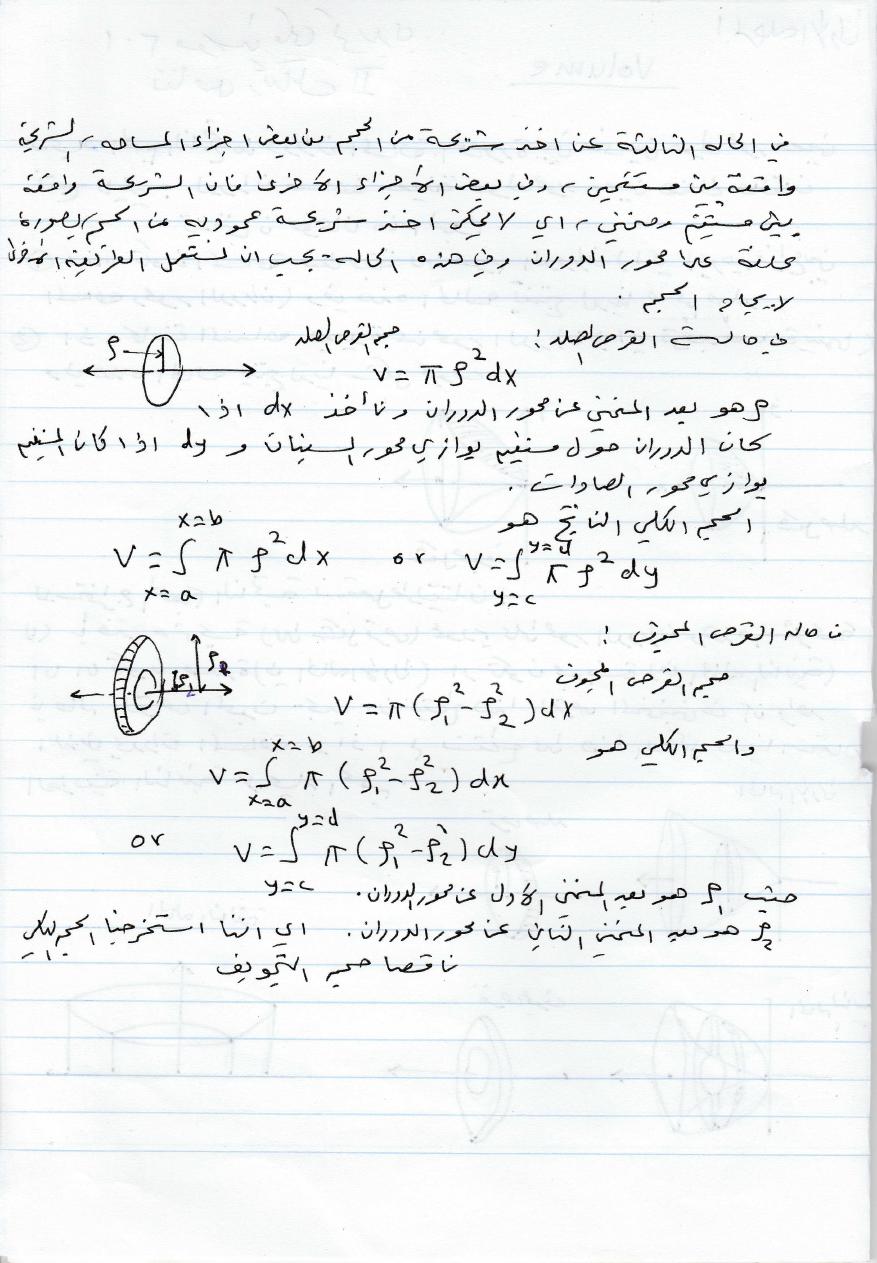 في الحاله الثالثة عن اخذ شريحة من الحجم من بعض اجزاء المساحه، الشريحة
واقعة بين مستقيمين، وفي بعض الأجزاء الأخرى فان الشريحة واقعة
بين مستقيم ومنحني، اي لا يمكن اخذ شريحة عموديه من الحجم بصورة
على محور الدوران وفي هذه الحاله يجب ان نستعمل الطريقة الاخرى
لايجاد الحجم.
في حالت القرص الصلد:
حجم القرص الصلد
ρ
V = π ρ² dx
ρ هو بعد المنحني عن محور الدوران ونأخذ dx اذا
كان الدوران حول مستقيم يوازي محور السينات و dy اذا كان المستقيم
يوازي محور الصادات.
الحجم الكلي الناتج هو
V = ∫_{x=a}^{x=b} π ρ² dx or V = ∫_{y=c}^{y=d} π ρ² dy
حاله القرص المجوف:
حجم القرص المجوف
V = π (ρ₁² - ρ₂²) dx
والحجم الكلي هو
V = ∫_{x=a}^{x=b} π (ρ₁² - ρ₂²) dx
or V = ∫_{y=c}^{y=d} π (ρ₁² - ρ₂²) dy
حيث ρ₁ هو بعد المنحني الاول عن محور الدوران.
ρ₂ هو بعد المنحني الثاني عن محور الدوران. اي اننا استخرجنا الحجم الكلي
ناقصا حجم التجويف